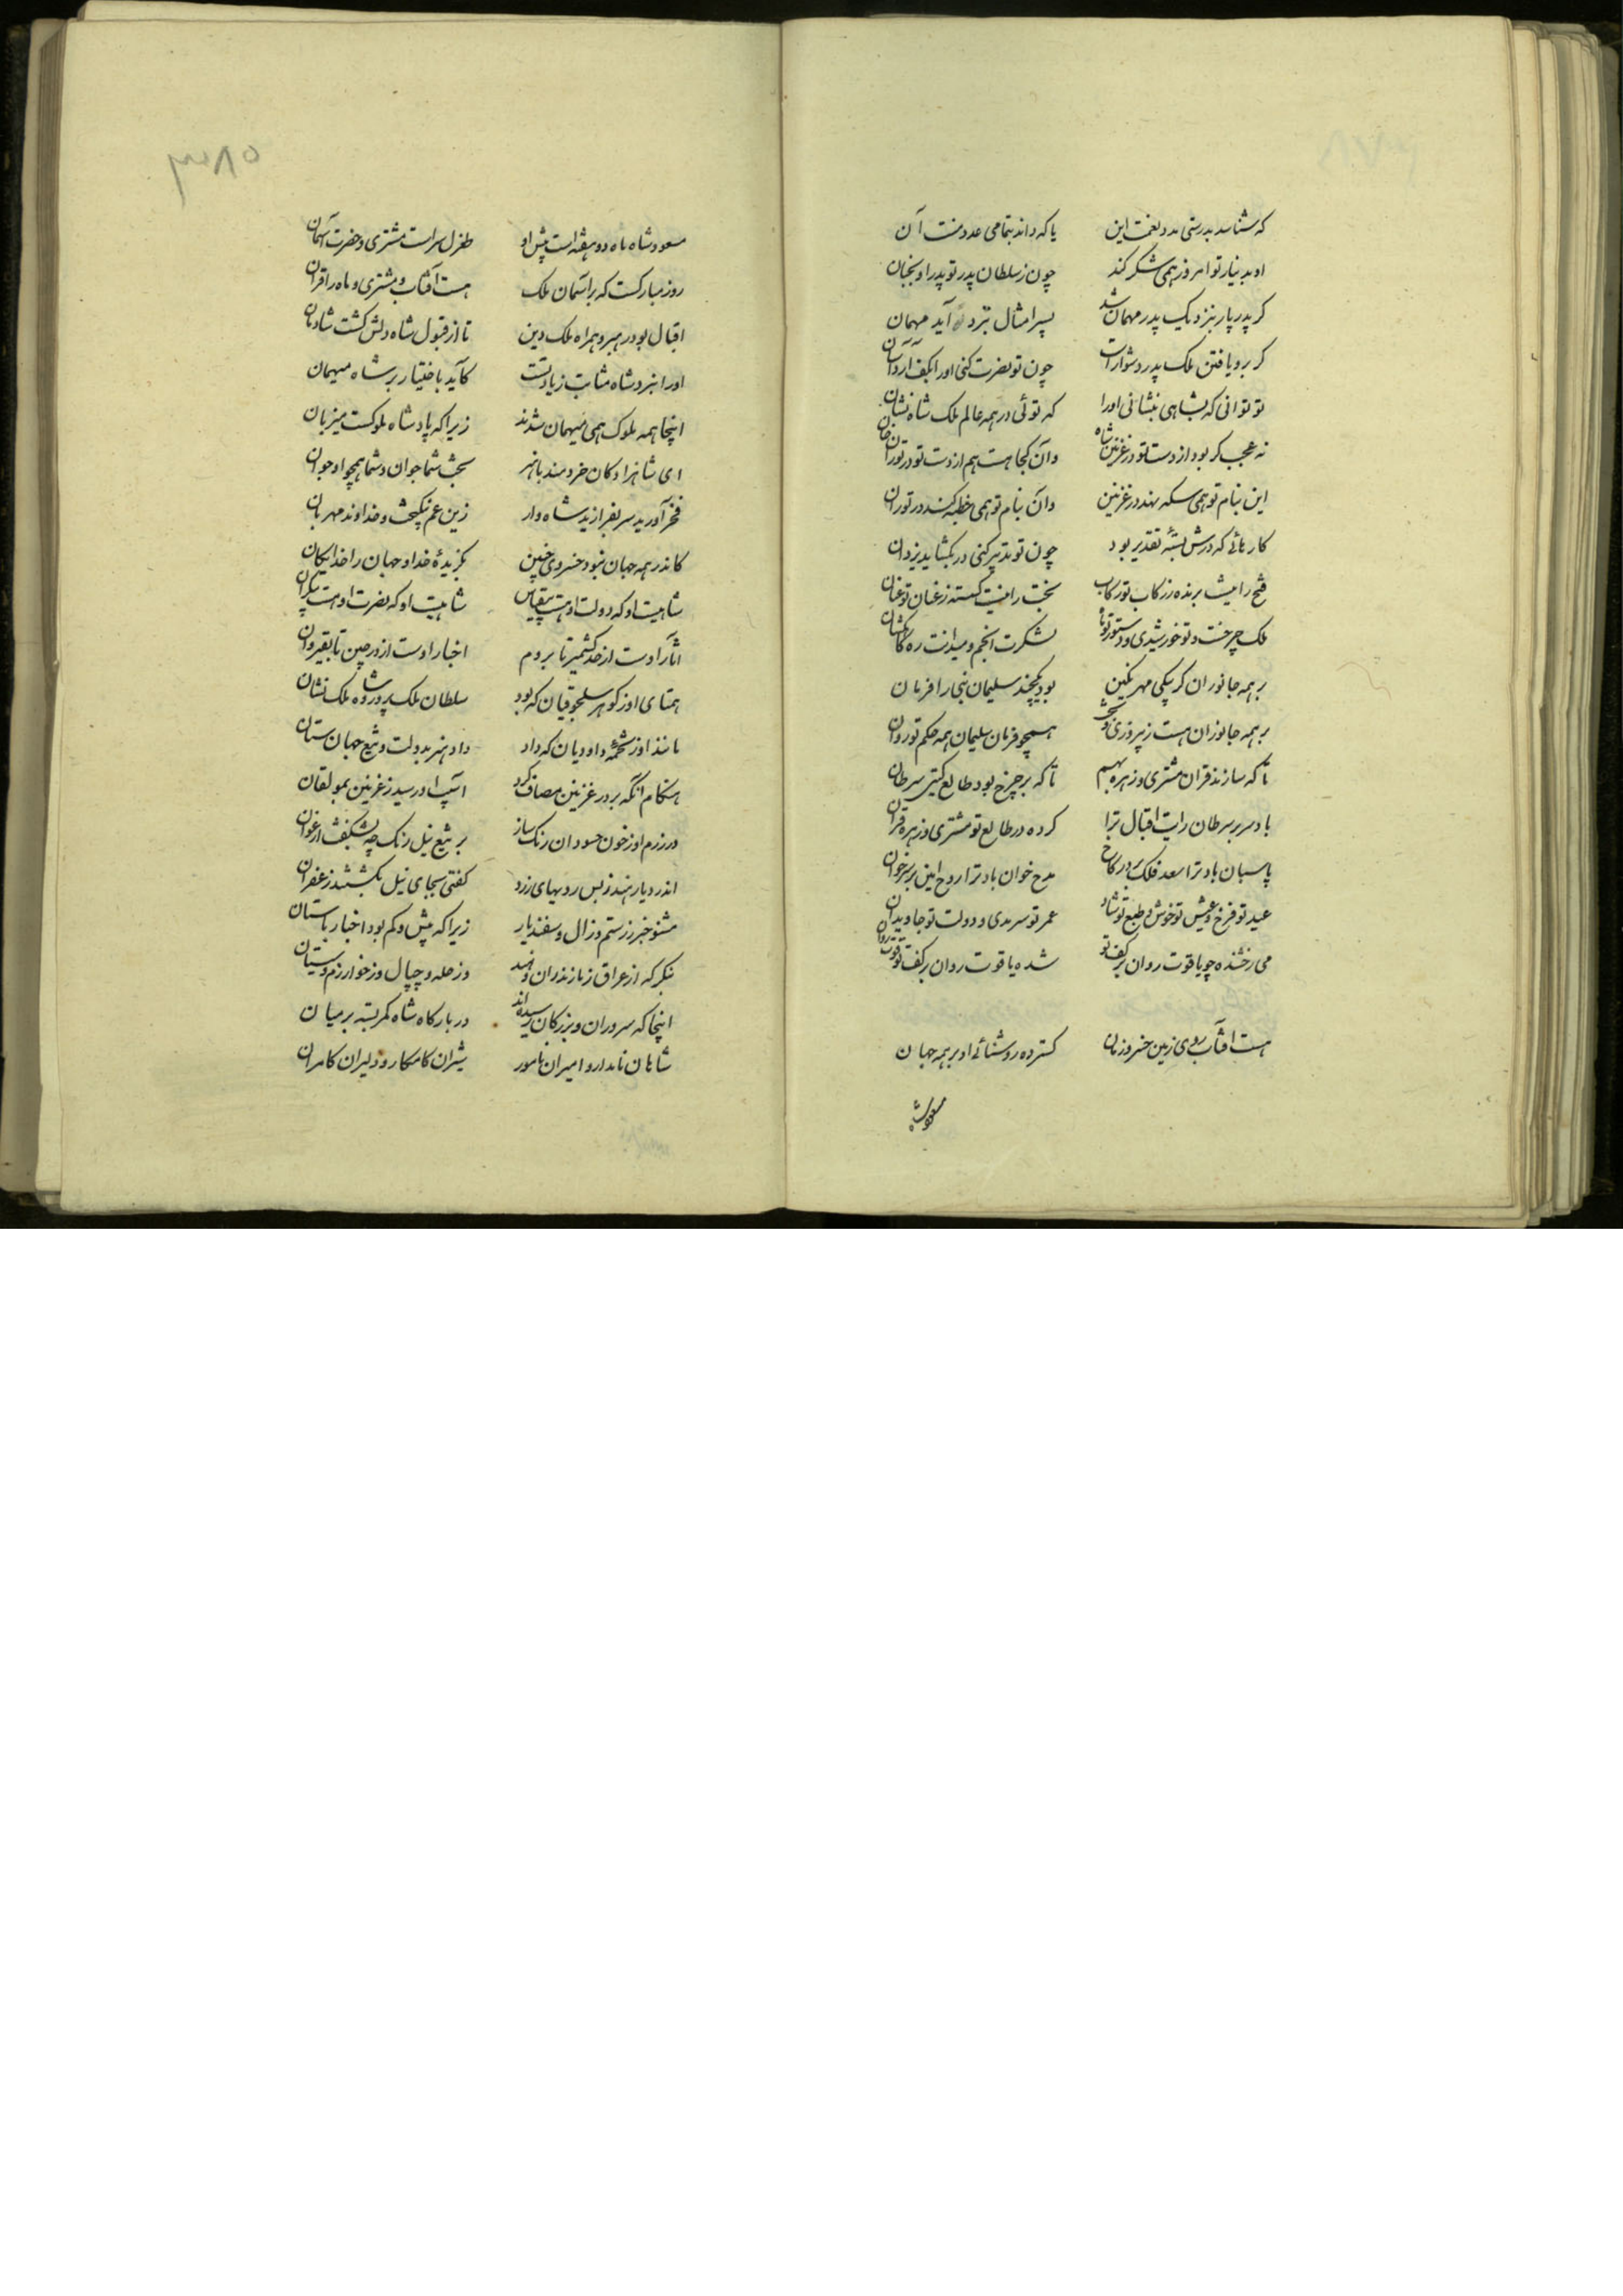 که شناسد بدرستی مدد نعمت این یا که داند بتمامی عدد منت آن
او بدینار تو امروز همی شکر کند چون ز سلطان پدر تو پدر او بخبان
کر پدر پار بنزدیک پدر مهمان شد پسر امثال بنزد آید مهمان
کر برو یافتن ملک پدر دشوارست چون تو نصرت کنی او را بکف آرد آسان
تو توانی که بشاهی بنشانی او را که توئی در همه عالم ملک شاه نشان
نه عجب کر بود از دست تو در غزنین شاه وآن کجا هست هم از دست تو در توران خان
این بنام تو همی سکه نهد در غزنین وان بنام تو همی خطبه کند در توران
کارهائی که درش بسته تقدیر بود چون تو تدبیر کنی در بکشاید یزدان
فتح را نیست برنده ز رکاب تو رکاب بخت را نیست کسسته ز عنان تو عنان
ملک چرخست و تو خورشیدی و دستور تو ماه لشکرت انجم و میدانت ره کاهکشان
بر همه جانوران کر بیکی مهر نکین بود یکچند سلیمان نبی را فرمان
بر همه جانوران هست ز پیروزی و بخت همچو فرمان سلیمان همه حکم تو روان
تا که سازند قران مشتری و زهره بهم تا که بر چرخ بود طالع کیتی سرطان
باد بر سر سرطان رایت اقبال ترا کرده در طالع تو مشتری و زهره قران
پاسبان باد ترا سعد فلک بر در کاخ مدح خوان باد ترا روح امین بر سر خوان
عید تو فرخ و عیش تو خوش و طبع تو شاد عمر تو سرمدی و دولت تو جاویدان
می رخشنده چو یاقوت روان بر کف تو شده یاقوت روان بر کف تو قوت روان
هست آفتاب روی زمین خسرو زمان کسترده روشنائی او بر همه جهان
مسعود شاه
۳۸۵
مسعود شاه ماه دو هفته است پیش او طغرل سراست مشتری و حضرت آسمان
روز مبارکست که بر آسمان ملک هست آفتاب و مشتری و ماه را قران
اقبال بود رهبر و همراه ملک دین تا از قبول شاه دلش کشت شادمان
او را بنزد شاه مثابت زیادتست کآید باختیار بر شاه میهمان
اینجا همه ملوک همی میهمان شدند زیرا که پادشاه ملوکست میزبان
ای شاهزادکان خردمند باهنر بخت شما جوان و شما همچو او جوان
فخر آورید سر بفرازید شاه وار زین عم نیکبخت و خداوند مهربان
کاندر همه جهان نبود خسروی چنین بکزیده خدا و جهان را خدایکان
شاهیست او که دولت او هست بیقیاس شاهیست او که نصرت او هست بیکران
آثار اوست از حد کشمیر تا بروم اخبار اوست از در چین تا بقیروان
همتای او ز کوهر سلجوقیان که بود سلطان ملک پرور و شاه ملک نشان
مانند او ز تخمه داودیان که داد داد هنر بدولت و تیغ جهان ستان
هنکام آنکه بر در غزنین مصاف کرد آسیب او رسید ز غزنین بمولقان
در رزم او ز خون حسودان رنک ساز بر تیغ نیل رنک چه بشکفت ارغوان
اندر دیار هند ز بس رویهای زرد کفتی بجای نیل بکشتند زعفران
مشنو خبر ز رستم و زال و سفندیار زیرا که بیش و کم بود اخبار باستان
بنکر که از عراق ز مازندران و هند وز حله و چپال وز خوارزم و سیستان
اینجا که سروران و بزرکان رسیده اند در بارکاه شاه کمر بسته بر میان
شاهان نامدار و امیران نامور شیران کامکار و دلیران کامران